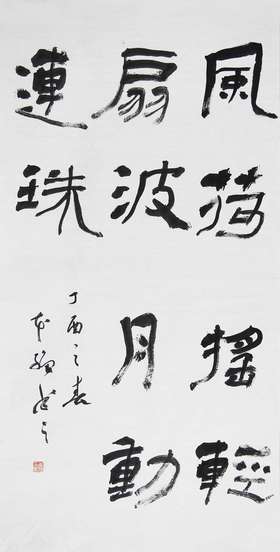 風荷搖輕
扇波月動
連珠
丁酉之春